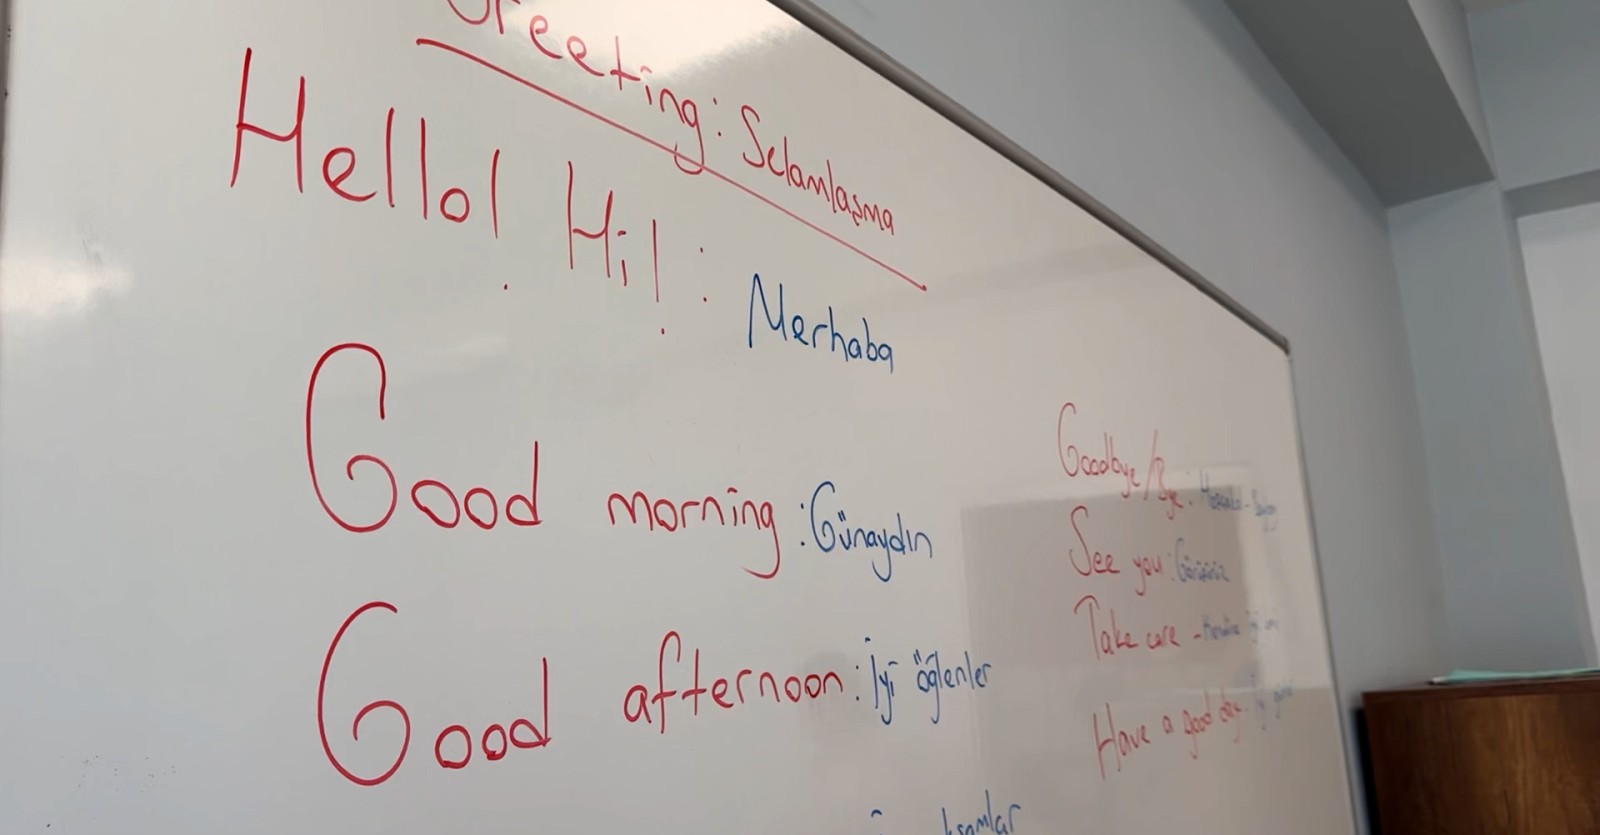 Greeting: Selamlaşma
Hello! Hi! : Merhaba
Good morning : Günaydın
Good afternoon : İyi öğlenler
Goodbye/Bye :
See you :
Take care -
Have a good day -